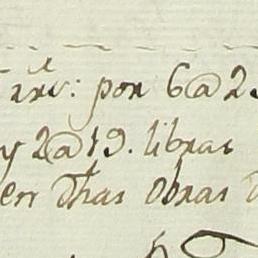 por 6@ 2
y 2@ 19. libras
en dhas obras